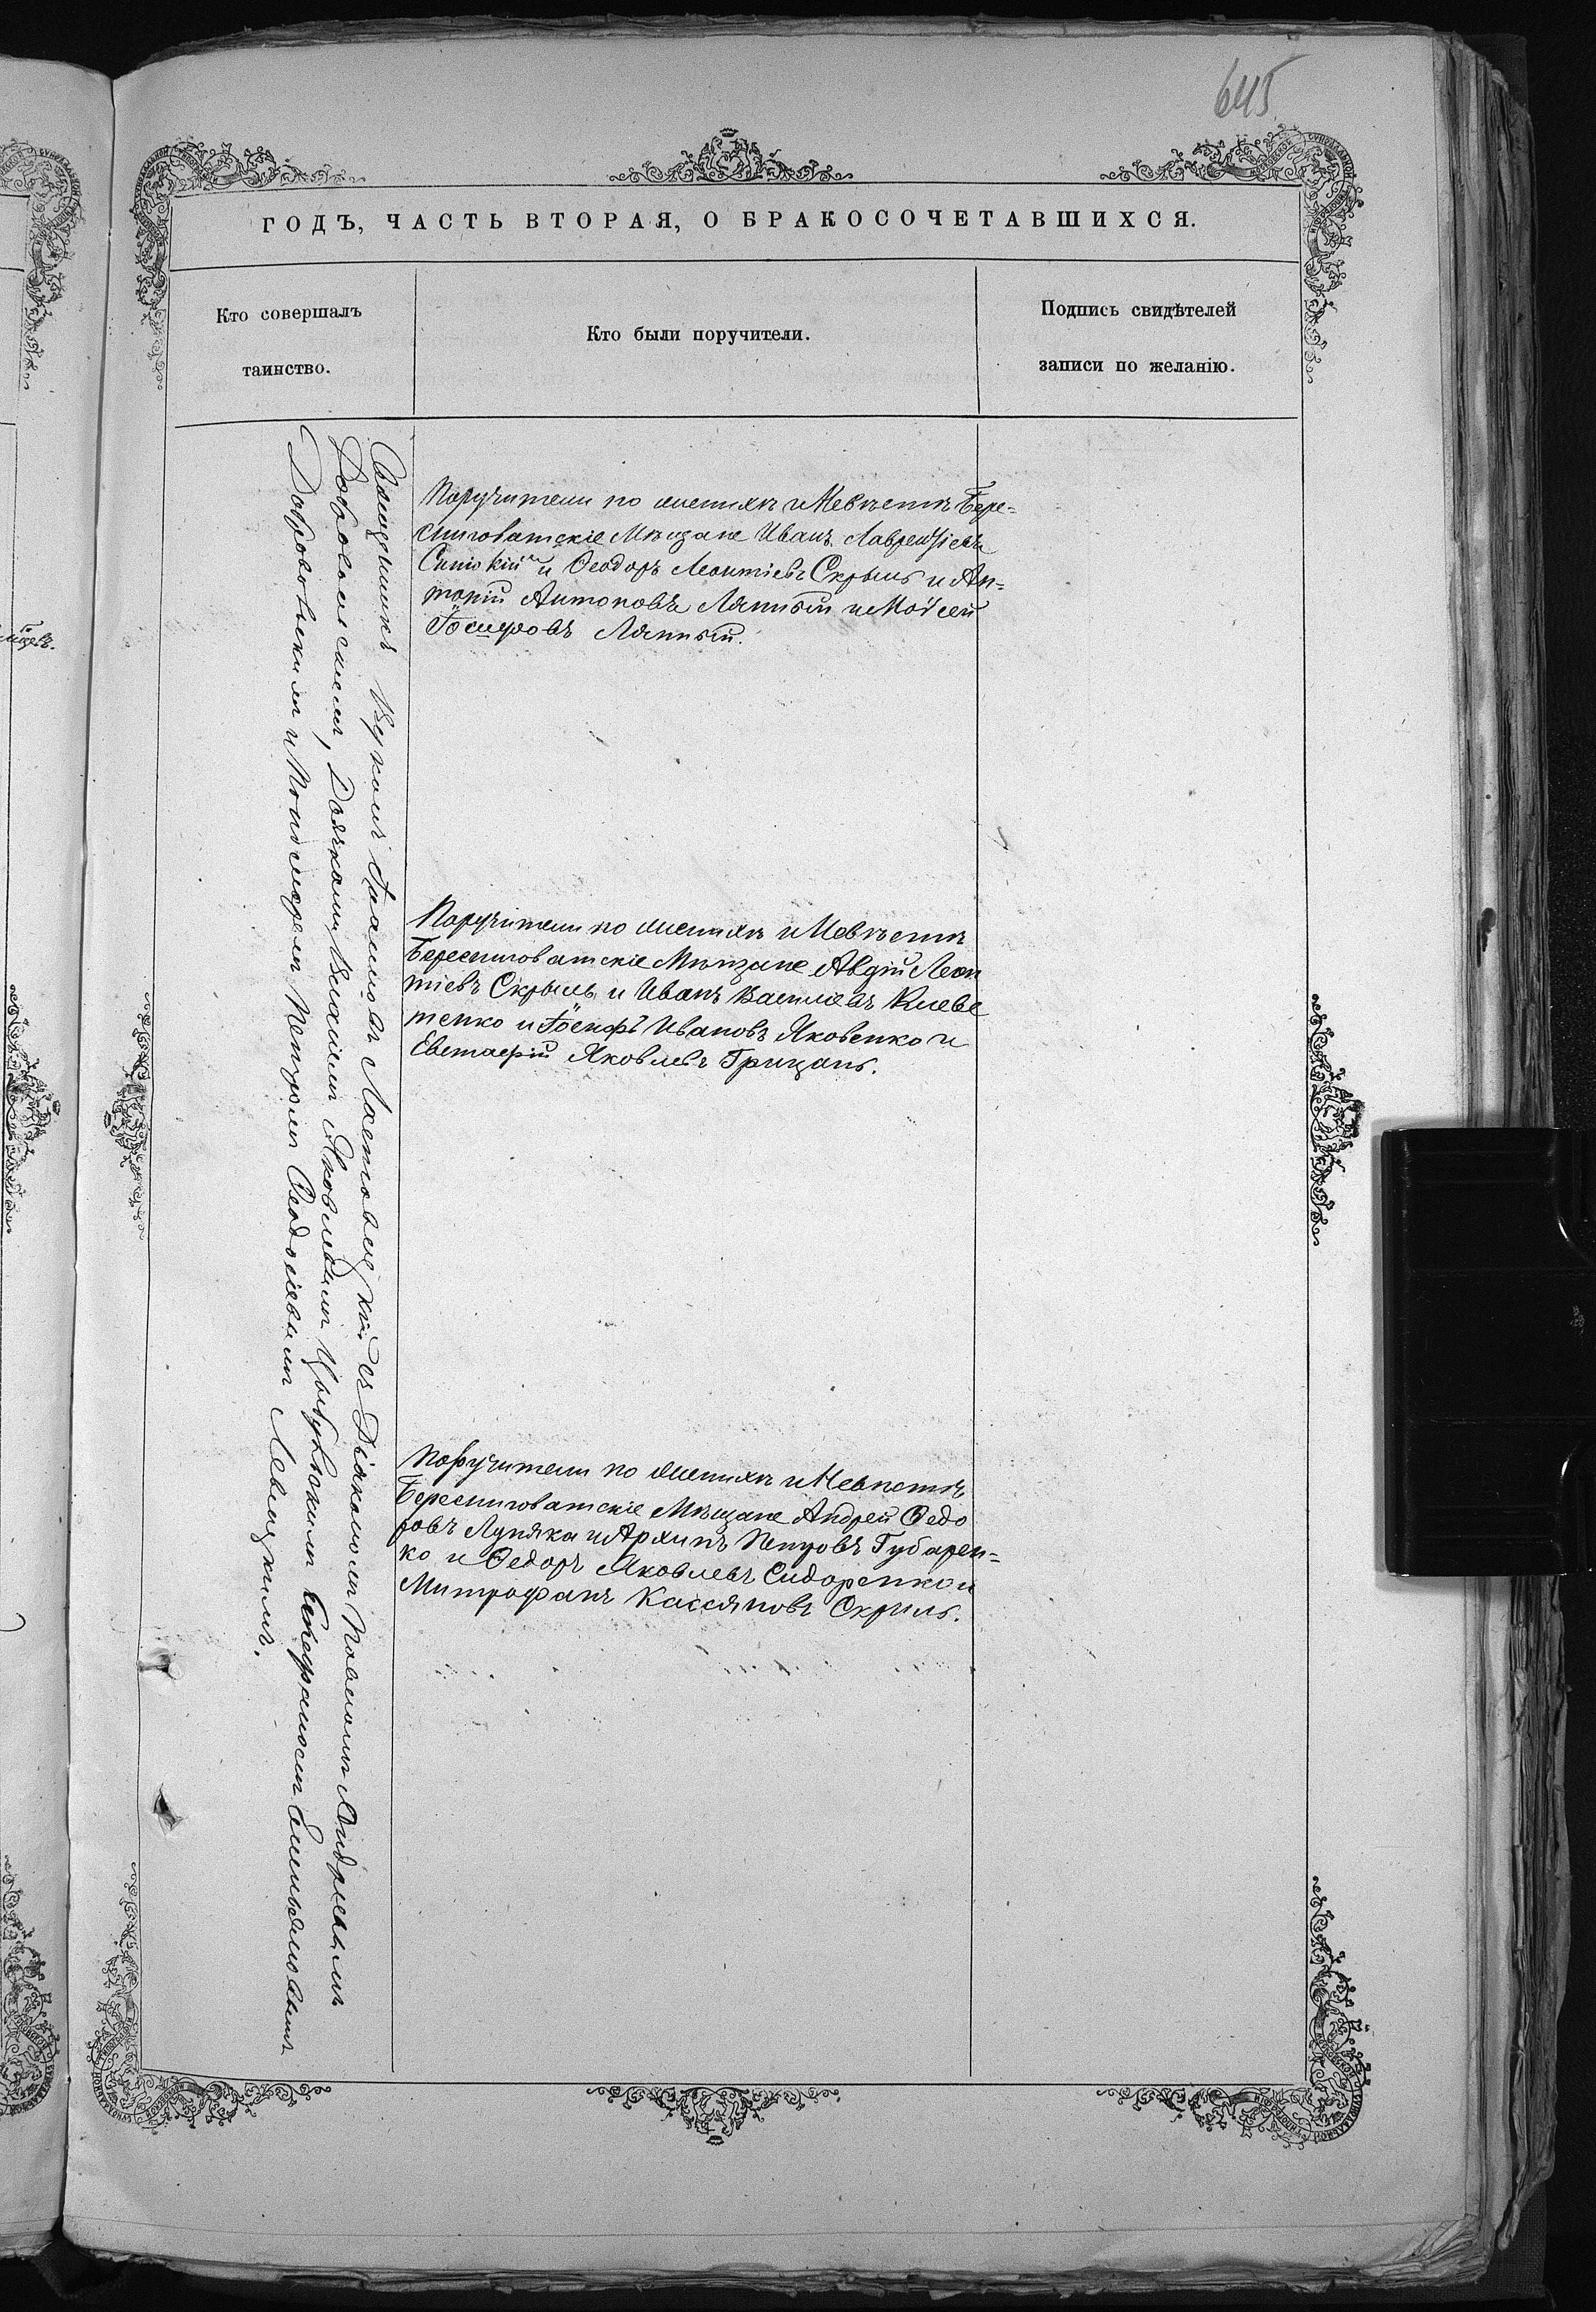 645
ГОДЪ, ЧАСТЬ ВТОРАЯ, О БРАКОСОЧЕТАВШИХСЯ.
Кто совершалъ
таинство.
Кто были поручители.
Подпись свидѣтелей
записи по желанію.
Священникъ Лястовецкій съ Діакономъ Павломъ Андреевымъ
Добровольскимъ, Дьячкомъ Яковлевымъ Стефаномъ
Добровольскимъ и Пономаремъ Петромъ Ѳеодосіевымъ Левицкимъ.
Поручители по женихѣ и Невѣстѣ Бере=
стоватскіе Мѣщане Иванъ Лаврентіевъ
и Ѳеодоръ Леонтіевъ Скрыль и Ан=
тоній Антоновъ Ляпный и Моѵсей
Ляпный.
Поручители по женихѣ и Невѣстѣ
Берестоватскіе Мѣщане Авдій Леон
тіевъ Скрыль и Иванъ Василіевъ Клеве
тенко и Іосифъ Ивановъ Яковенко и
Евстафій Яковлевъ Грицань.
Поручители по женихѣ и Невѣстѣ
Берестоватскіе Мѣщане Андрей Ѳедо
ровъ Лупяка и Архипъ Петровъ Губарен=
ко и Ѳедоръ Яковлевъ Сидоренко и
Митрофанъ Кассяновъ Скрыль.